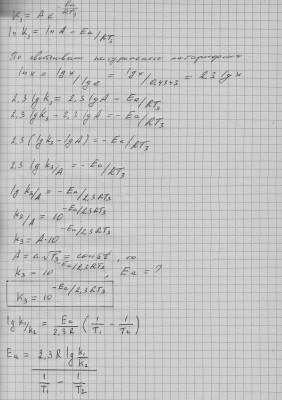 K₃ = A e^(-Ea/RT₃)
ln K₃ = ln A - Ea/RT₃
По свойствам натурального логарифма
ln x = lg x / lg e = lg x / 0,4343 = 2,3 lg x
2,3 lg k₃ = 2,3 lg A - Ea/RT₃
2,3 lg k₃ - 2,3 lg A = - Ea/RT₃
2,3 (lg k₃ - lg A) = - Ea/RT₃
2,3 lg k₃/A = - Ea/RT₃
lg k₃/A = - Ea/2,3RT₃
k₃/A = 10^(-Ea/2,3RT₃)
k₃ = A·10^(-Ea/2,3RT₃)
A = a√T₃ = const, то
k₃ = 10^(-Ea/2,3RT₃), Ea = ?
K₃ = 10^(-Ea/2,3RT₃)
lg k₁/k₂ = Ea/2,3R (1/T₁ - 1/T₂)
Ea = 2,3 R lg k₁/k₂ / (1/T₁ - 1/T₂)